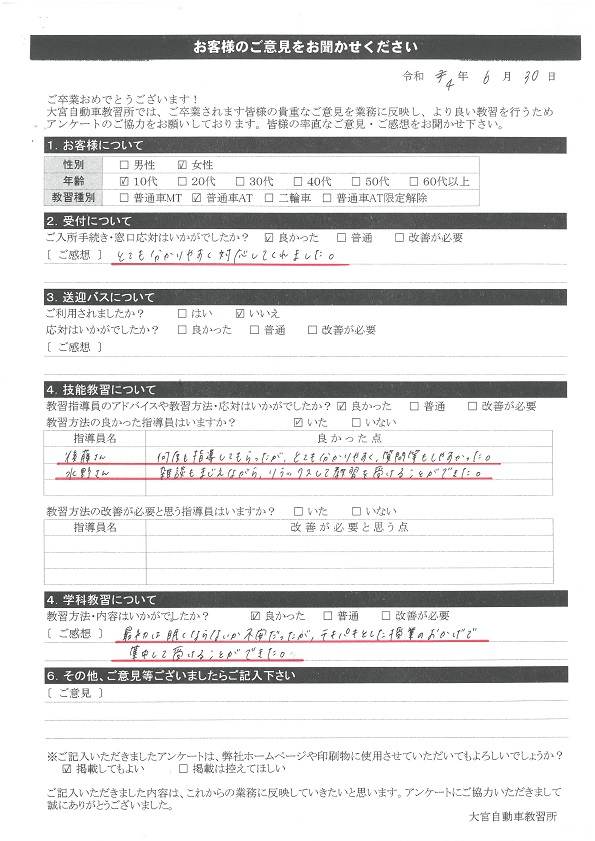 お客様のご意見をお聞かせください
令和 4 年 6 月 30 日
ご卒業おめでとうございます！
大宮自動車教習所では、ご卒業されます皆様の貴重なご意見を業務に反映し、より良い教習を行うため
アンケートのご協力をお願いしております。皆様の率直なご意見・ご感想をお聞かせ下さい。
1. お客様について
性別 □ 男性 ☑ 女性
年齢 ☑ 10代 □ 20代 □ 30代 □ 40代 □ 50代 □ 60代以上
教習種別 □ 普通車MT ☑ 普通車AT □ 二輪車 □ 普通車AT限定解除
2. 受付について
ご入所手続き・窓口応対はいかがでしたか？ ☑ 良かった □ 普通 □ 改善が必要
[ ご感想 ] とても分かりやすく対応してくれました。
3. 送迎バスについて
ご利用されましたか？ □ はい ☑ いいえ
応対はいかがでしたか？ □ 良かった □ 普通 □ 改善が必要
[ ご感想 ]
4. 技能教習について
教習指導員のアドバイスや教習方法・応対はいかがでしたか？ ☑ 良かった □ 普通 □ 改善が必要
教習方法の良かった指導員はいますか？ ☑ いた □ いない
指導員名 良かった点
後藤さん 何度も指導してもらったが、とても分かりやすく、質問等もしやすかった。
水野さん 雑談もまじえながら、リラックスして教習を受けることができた。
教習方法の改善が必要と思う指導員はいますか？ □ いた □ いない
指導員名 改善が必要と思う点
4. 学科教習について
教習方法・内容はいかがでしたか？ ☑ 良かった □ 普通 □ 改善が必要
[ ご感想 ] 最初は眠くならないか不安だったが、テキパキとした授業のおかげで
集中して受けることができた。
6. その他、ご意見等ございましたらご記入下さい
[ ご意見 ]
※ご記入いただきましたアンケートは、弊社ホームページや印刷物に使用させていただいてもよろしいでしょうか？
☑ 掲載してもよい □ 掲載は控えてほしい
ご記入いただきました内容は、これからの業務に反映していきたいと思います。アンケートにご協力いただきまして
誠にありがとうございました。
大宮自動車教習所